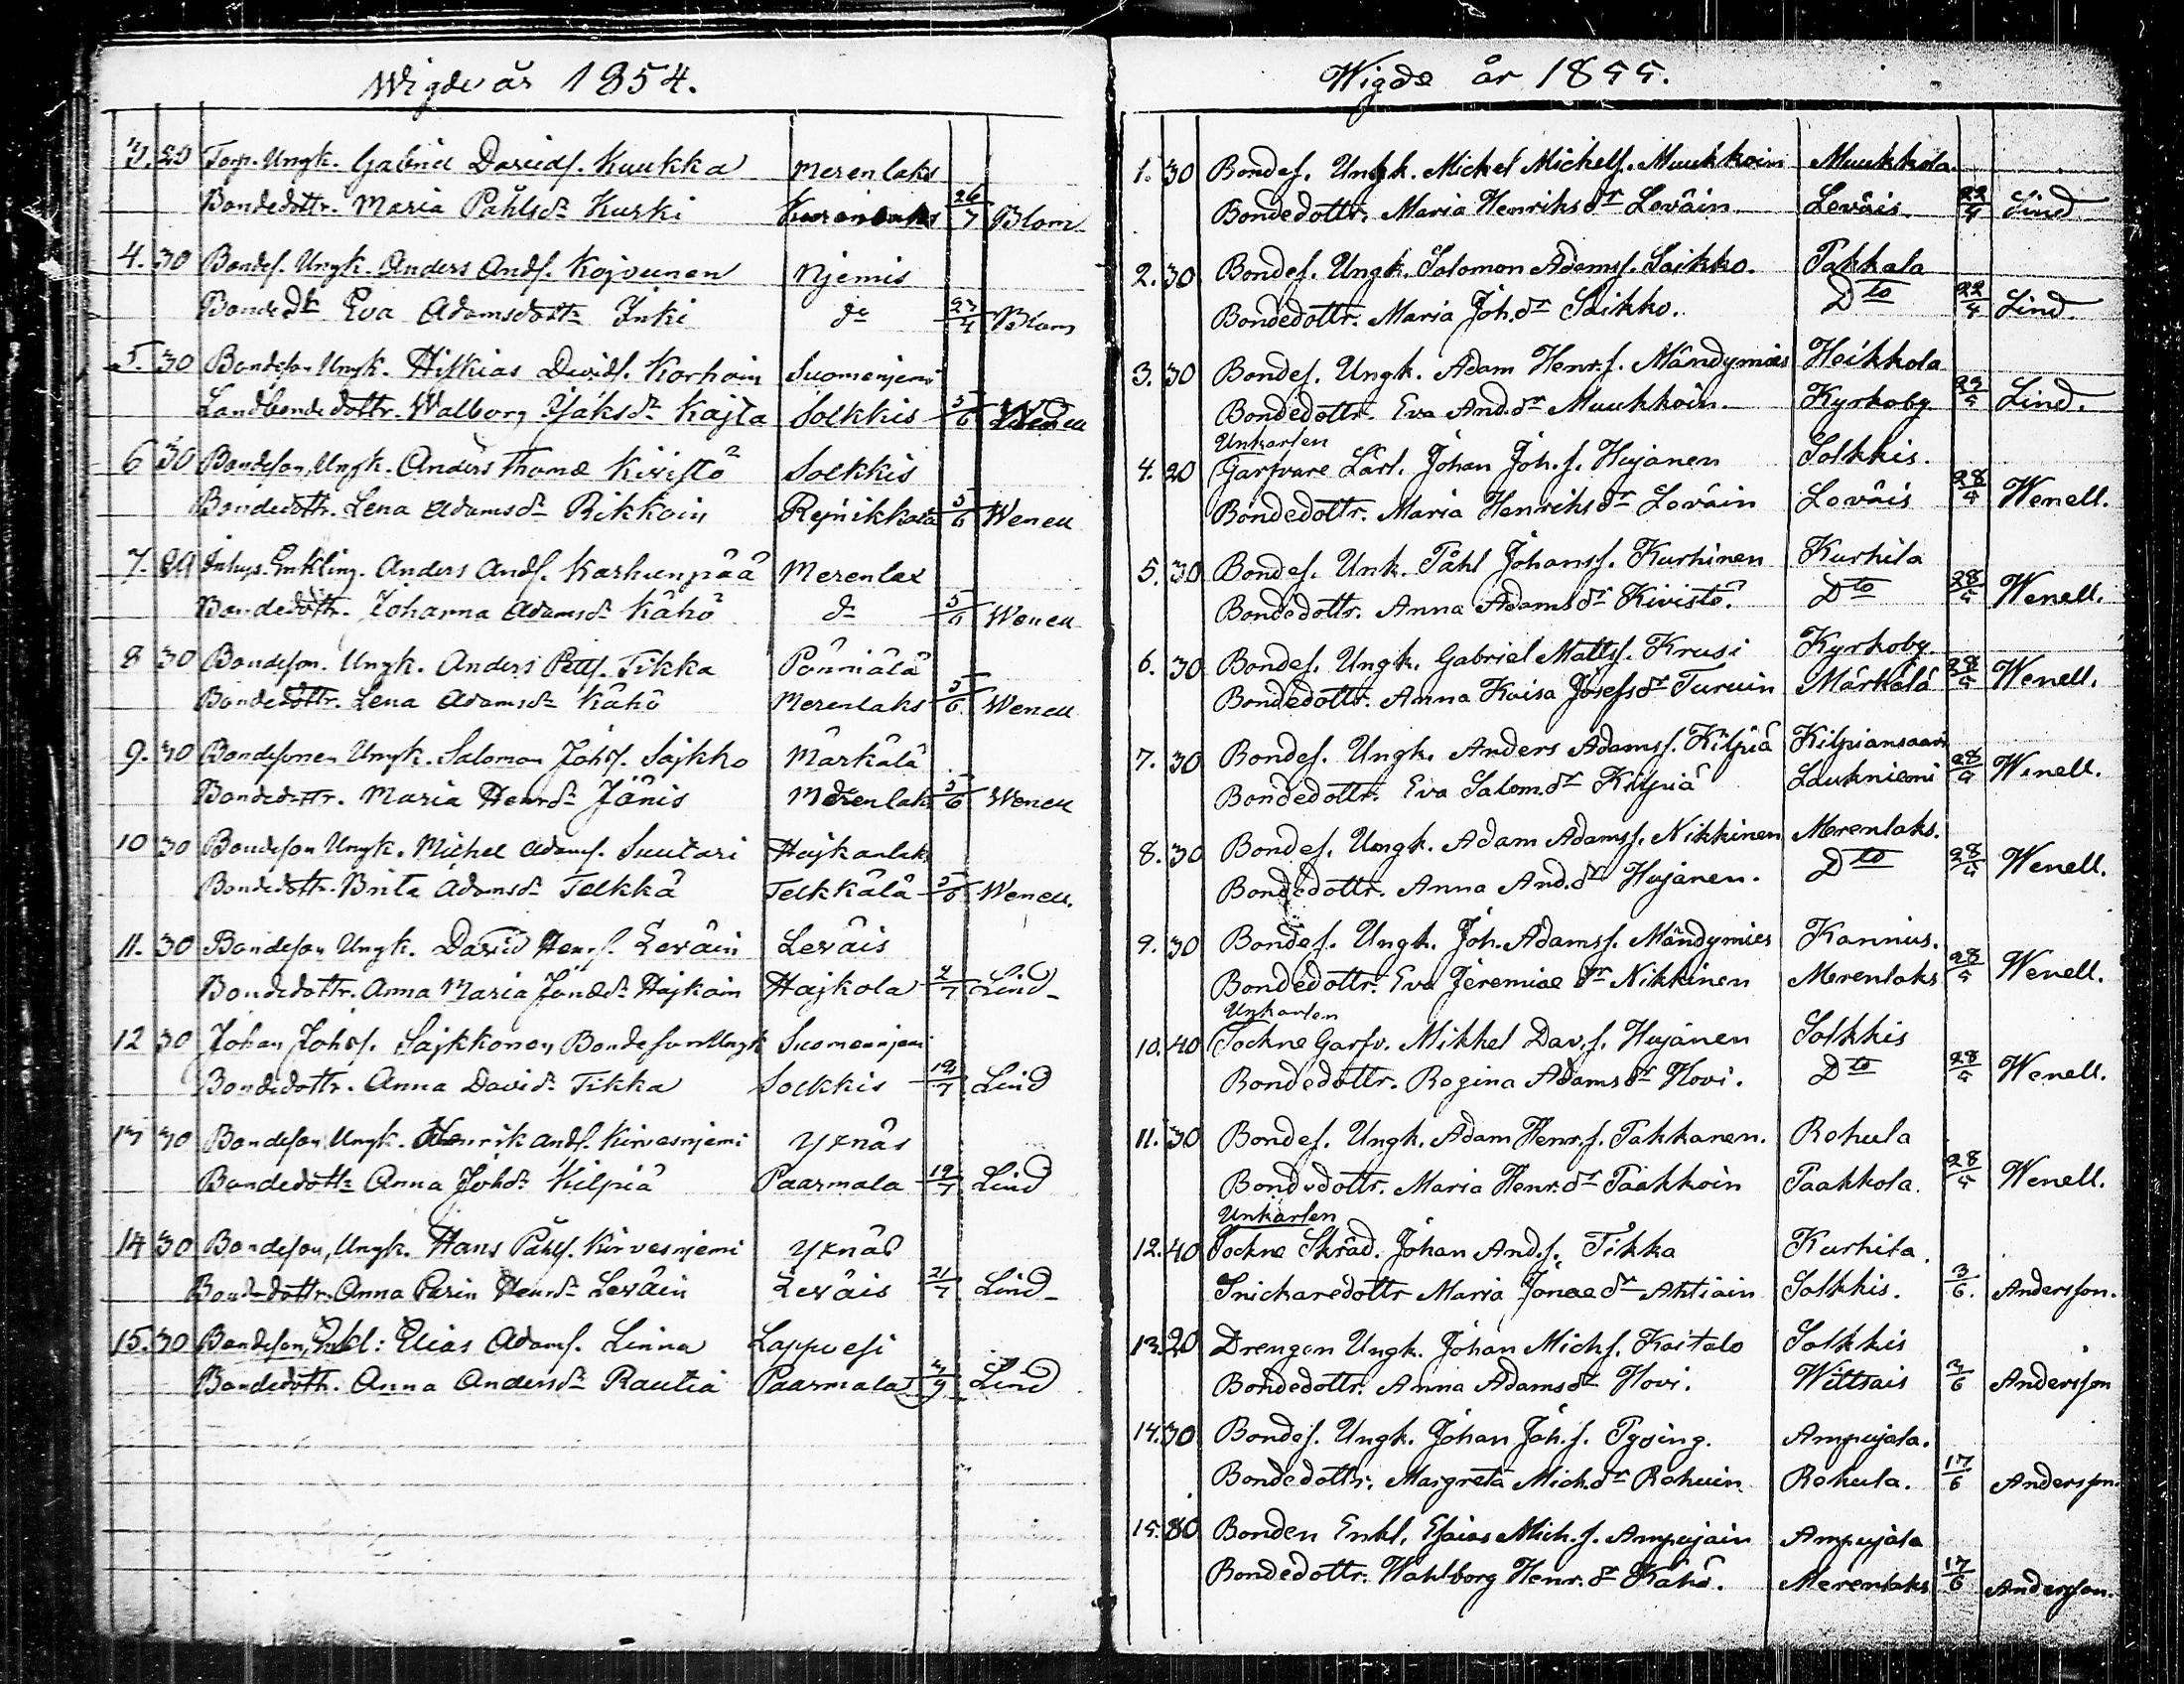 Wigde år 1854.
3. 20 Torp. Ungk. Gabriel Davids. Kuukka Merenlaks
Bondedottr. Maria Påhlsdr Kurki 26/7 Blom
4. 30 Bondes. Ungk. Anders Ands. Kojvunen Njemis
Bondedtr Eva Adamsdottr Inki do 23/4 Blom
5. 30 Bondeson Ungk. Hiskias Davids. Korhoin Suomenjemi
Landbondedottr. Walborg Jaksdr Kajta Solkkis 5/6
6 30 Bondeson, Ungk. Anders Thomæ Kivistö Solkkis
Bondedottr. Lena Adamsdr Rikkoin 5/6 Wenell
7. Inhys. Enkling. Anders Ands. Karhunpää Merenlax
Bondedottr. Johanna Adamsdr Kähö do 5/6 Wenell
8 30 Bondeson. Ungk. Anders Petts. Tikka Pönniälä
Bondedottr. Lena Adamsdr Kähö Merenlaks 5/6 Wenell
9. 30 Bondesonen Ungk. Salomon Johs. Sajkko Märkälä
Bondedottr. Maria Henrdr Jänis Merenlaks 5/6 Wenell
10 30 Bondeson Ungk. Michel Adams. Suutari Hajkanlaks
Bondedottr. Brita Adamsdr Telkkä Telkkälä 5/6 Wenell.
11. 30 Bondeson Ungk. David Henrs. Leväin Leväis
Bondedottr. Anna Maria Jonædr Hajkoin Hajkola 2/7 Lind
12 30 Johan Johs. Sajkkonen Bondeson Ungk Suomenjemi
Bondedottr. Anna Davidr Tikka Solkkis 12/7 Lind
13 30 Bondeson Ungk. Henrik Ands. Kirvesnjemi Yxnäs
Bondedottr Anna Johdr Kilpiä Paarmala 12/7 Lind
14 30 Bondeson, Ungk. Hans Påhls. Kirvesnjemi Yxnäs
Bondedottr. Anna Carin Henrdr Leväin Leväis 21/7 Lind
15. 30 Bondeson, Enkl: Elias Adams. Linna Lappvesi
Bondedottr. Anna Andersdr Rautia Paarmala Lind
Wigde år 1855.
1. 30 Bondes. Ungk. Michel Michels. Muukkoin Muukkola
Bondedottr. Maria Henriksdr Leväin Leväis. 22/4 Lind
2. 30 Bondes. Ungk. Salomon Adamss. Saikko. Pakkala
Bondedottr. Maria Joh.dr Saikko. Dto 22/4 Lind.
3. 30 Bondes. Ungk. Adam Henr.s. Mändymies Heikkola
Bondedottr. Eva And.dr Muukkoin. Kyrkoby Lind.
Unkarlen
4. 20 Garfvare Lärl. Johan Joh.s. Hujanen Solkkis.
Bondedottr. Maria Henriksdr Leväin Leväis Wenell.
5. 30 Bondes. Unk. Påhl Johanss. Kurhinen Kurhila
Bondedottr. Anna Adamsdr Kivistö. Dto Wenell.
6. 30 Bondes. Ungk. Gabriel Matts. Krusi Kyrkoby.
Bondedottr. Anna Kaisa Josefsdr Turuin Märkälä Wenell.
7. 30 Bondes. Ungk. Anders Adamss. Kilpiä Kilpiansaari
Bondedottr. Eva Salom.dr Kilpiä Laukniemi Wenell.
8. 30 Bondes. Ungk. Adam Adamss. Nikkinen Merenlaks.
Bondedottr. Anna And.dr Hujanen. Dto Wenell.
9. 30 Bondes. Ungk. Joh. Adamss. Mändymies Kannus.
Bondedottr. Eva Jeremiae dr Nikkinen Merenlaks Wenell.
Unkarlen
10. 40 Sockne Garfv. Mikkel Dav.s. Hujanen Solkkis
Bondedottr. Regina Adamsdr Hovi. Dto Wenell.
11. 30 Bondes. Ungk. Adam Henr.s. Pakkanen. Rohula
Bondedottr. Maria Henr.dr Paakkoin Paakkola. Wenell.
Unkarlen
12. 40 Sockne Skräd. Johan And.s. Tikka Kurhila.
Snickaredottr Maria Jonae dr Ahtiain Solkkis. 3/6. Andersson.
13. 20 Drengen Ungk. Johan Michs. Kaitalo Solkkis
Bondedottr. Anna Adamsdr Hovi. Wittsais 3/6 Andersson
14. 30 Bondes. Ungk. Johan Joh.s. Pysing. Ampujala.
Bondedottr. Margreta Mich.dr Rohuin Rohula. 17/6 Andersson.
15. 80 Bonden Enkl. Esaias Mich.s. Ampujain Ampujala
Bondedottr. Wahlborg Henr.dr Kähö. Merenlaks 17/6 Andersson.